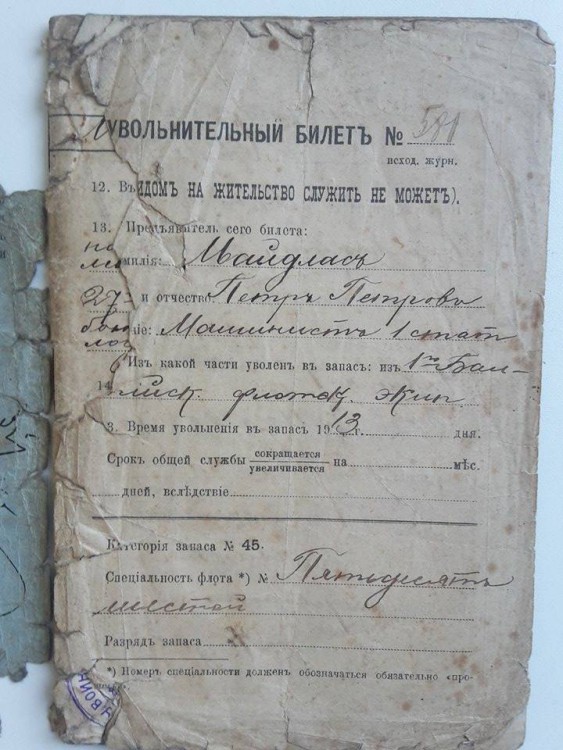 УВОЛЬНИТЕЛЬНЫЙ БИЛЕТЪ № 581
исход. журн.
12. ВИДОМЪ НА ЖИТЕЛЬСТВО СЛУЖИТЬ НЕ МОЖЕТЪ).
13. Предъявитель сего билета:
милія: Майдласъ
27 и отчество Петръ Петровъ
ніе: Машинистъ 1 стат
Изъ какой части уволенъ въ запасъ: изъ 1го Бал-
14 тійск. флотск. экип.
3. Время увольненія въ запасъ 1913 г. дня.
Срокъ общей службы сокращается увеличивается на мѣс.
дней, вслѣдствіе
Категорія запаса № 45.
Спеціальность флота *) № Пятьдесятъ
шестой
Разрядъ запаса
*) Номеръ спеціальности долженъ обозначаться обязательно «про-